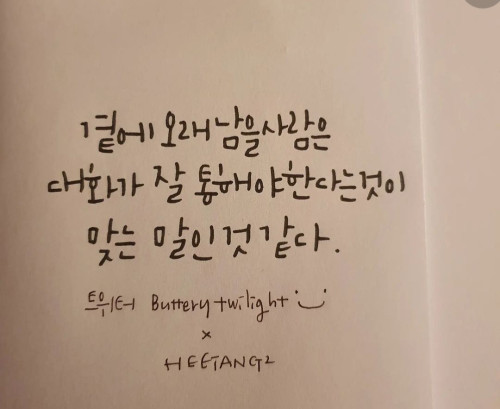 곁에 오래 남을사람은
대화가 잘 통해야한다는것이
맞는 말인것 같다.
트위터 Buttery twilight
×
HEETANG2